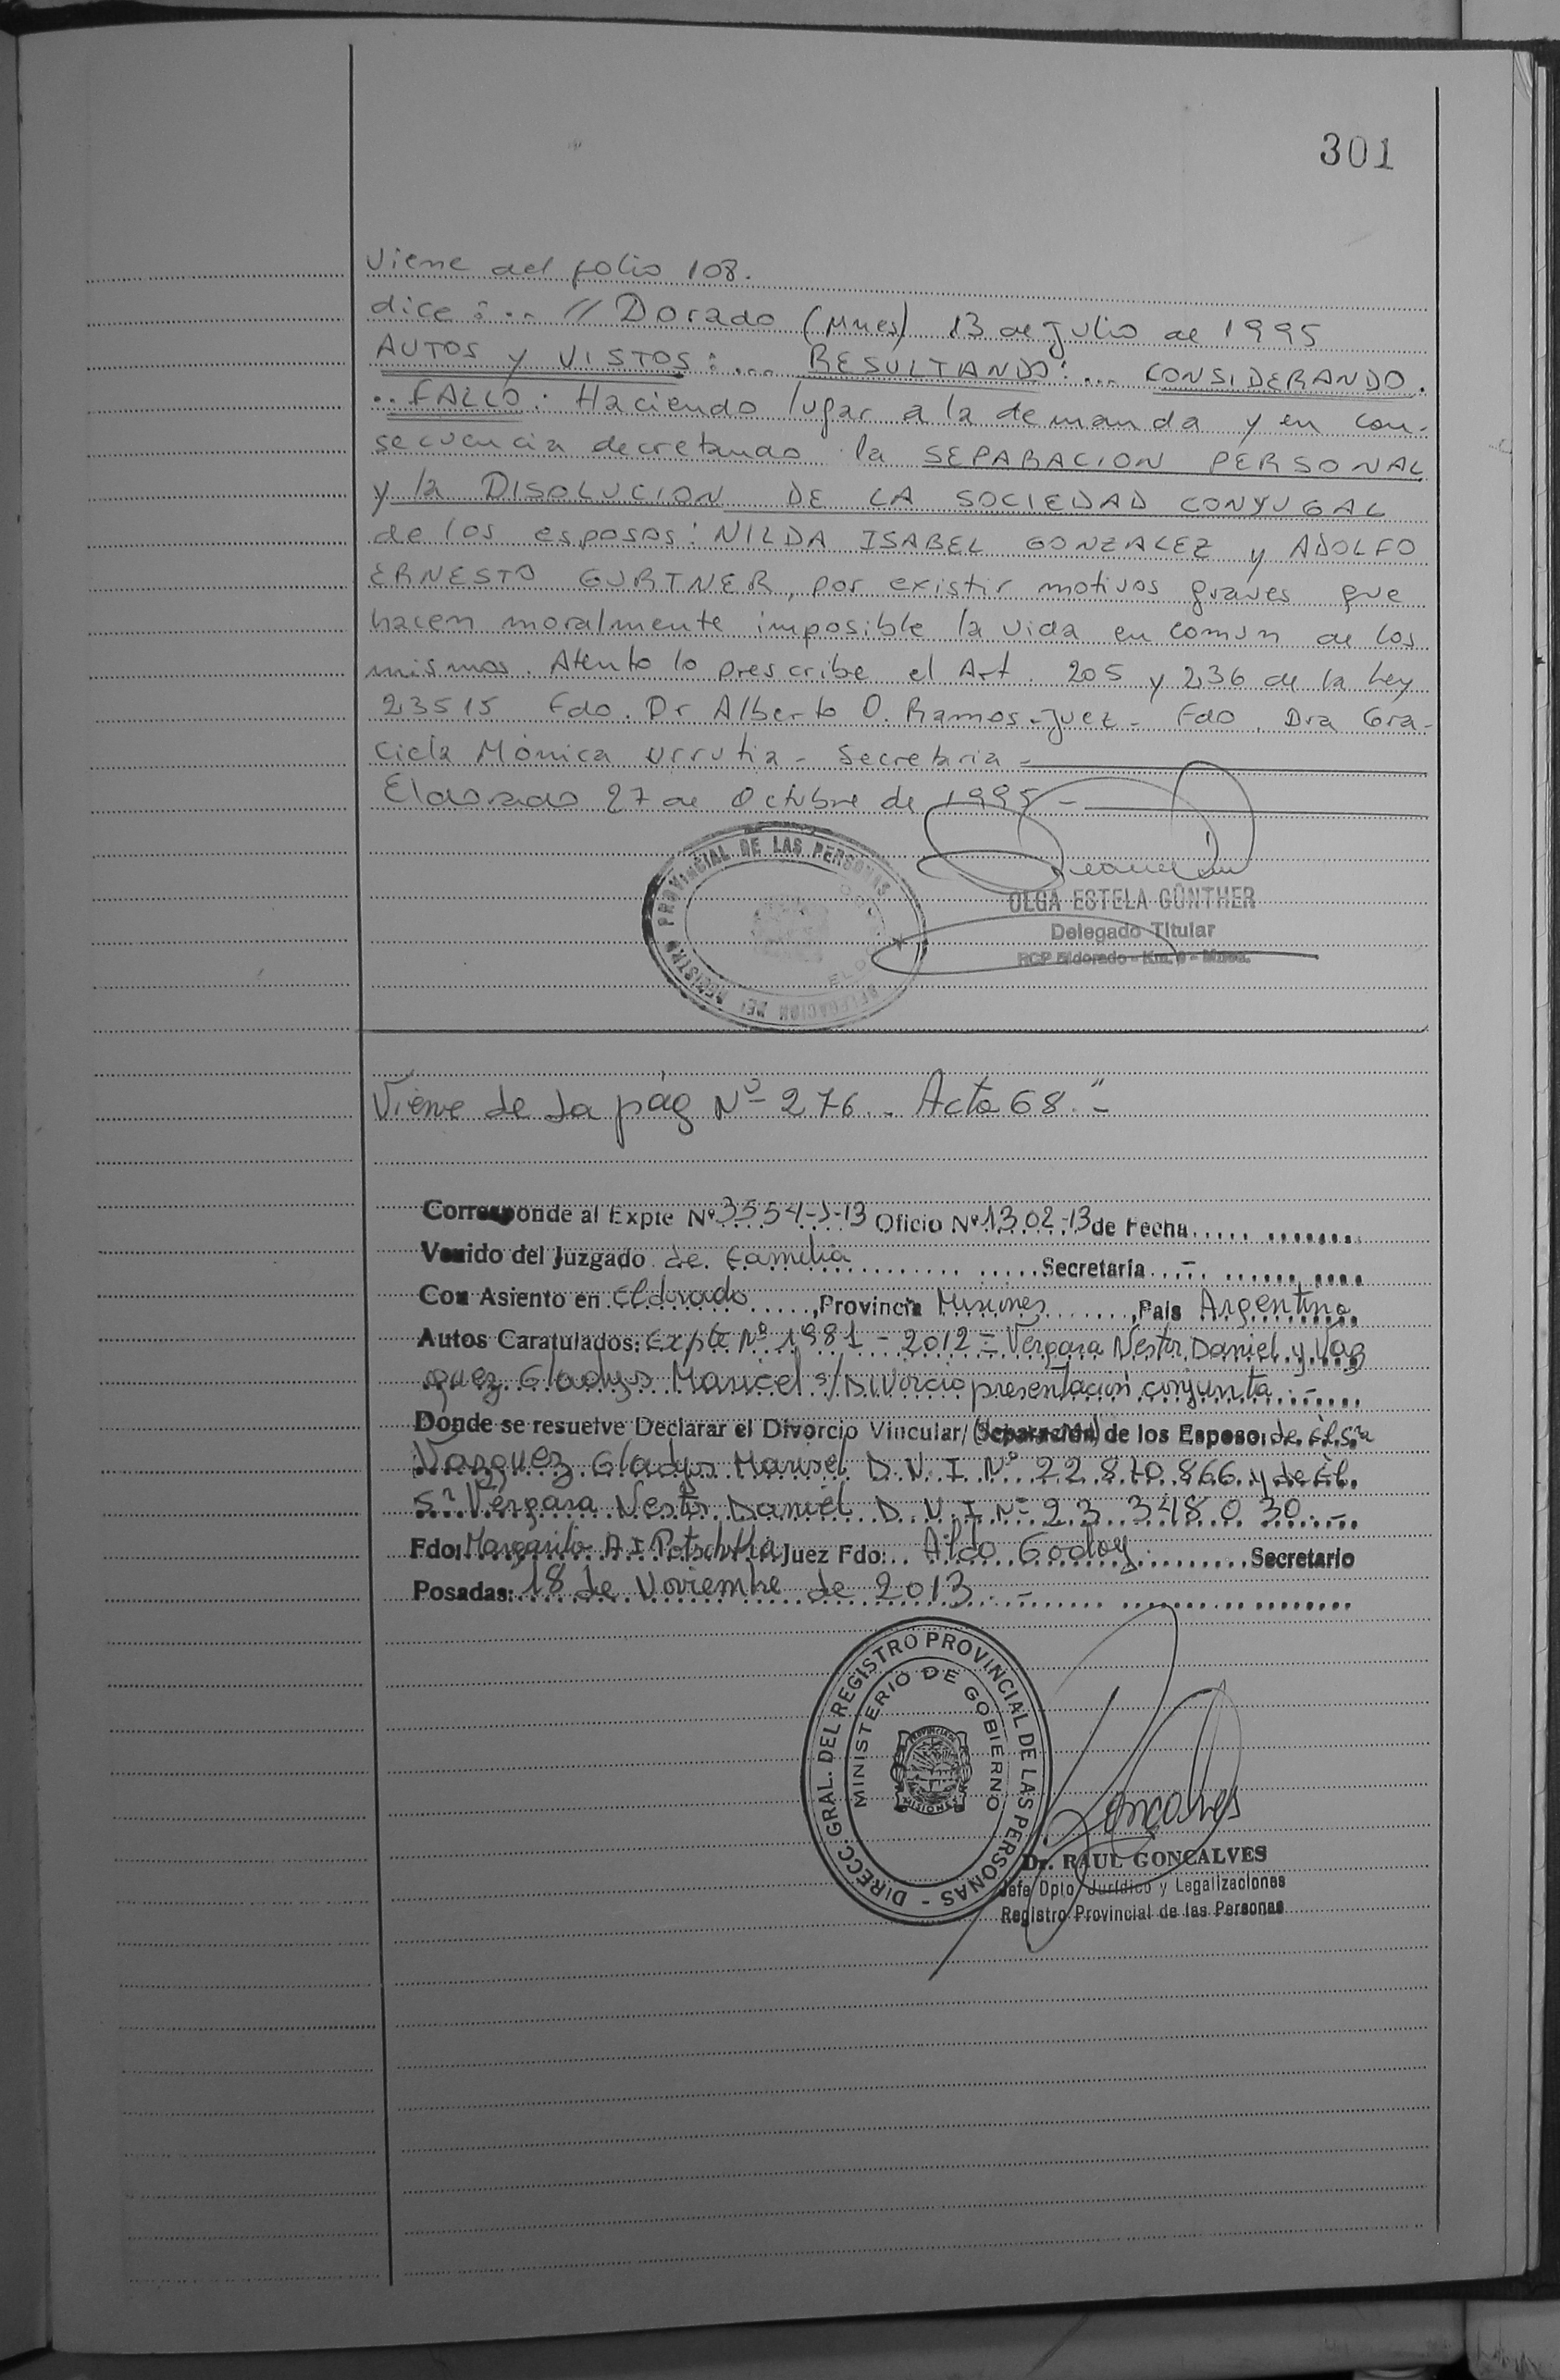 301
Viene del folio 108.
dice: .. // Dorado (Mnes) 13 de Julio de 1995
AUTOS y VISTOS: ... RESULTANDO: ... CONSIDERANDO.
.. FALLO: Haciendo lugar a la demanda y en con-
secuencia decretando la SEPARACION PERSONAL
y la DISOLUCION DE LA SOCIEDAD CONYUGAL
de los esposos: NILDA ISABEL GONZALEZ y ADOLFO
ERNESTO GURTNER, por existir motivos graves que
hacen moralmente imposible la vida en común de los
mismos. Atento lo prescribe el Art. 205 y 236 de la Ley
23515 Fdo. Dr Alberto O. Ramos - Juez - Fdo. Dra Gra-
ciela Mónica Urrutia - Secretaria -
Eldorado 27 de Octubre de 1995 -
REGISTRO PROVINCIAL DE LAS PERSONAS
DELEGACION DEL
OLGA ESTELA GÜNTHER
Delegado Titular
RCP Eldorado - Km. 9 - Mnes.
Viene de La pág Nº 276 - Acta 68" -
Corresponde al Expte Nº 3554-J-13 Oficio Nº 1302-13 de Fecha
Venido del Juzgado de Familia Secretaría -
Con Asiento en Eldorado, Provincia Misiones, Pais Argentina
Autos Caratulados: Expte Nº 1981 - 2012 = Vergara Nestor Daniel y Vaz
quez Gladys Maricel s/ Divorcio presentación conjunta. -
Donde se resuelve Declarar el Divorcio Vincular/(Separación) de los Esposo: de El Sra
Vazquez Gladys Marisel D.N.I Nº 22.870.866 y de El
Sr Vergara Nestor Daniel D.N.I Nº 23 348 0 30. -
Fdo: Margarita A I Juez Fdo: Aldo Godoy Secretario
Posadas: 18 de Noviembre de 2013 -
DIRECC. GRAL. DEL REGISTRO PROVINCIAL DE LAS PERSONAS -
MINISTERIO DE GOBIERNO
PROVINCIA
MISIONES
Goncalves
Dr. RAUL GONCALVES
Jefe Dpto. Jurídico y Legalizaciones
Registro Provincial de las Personas